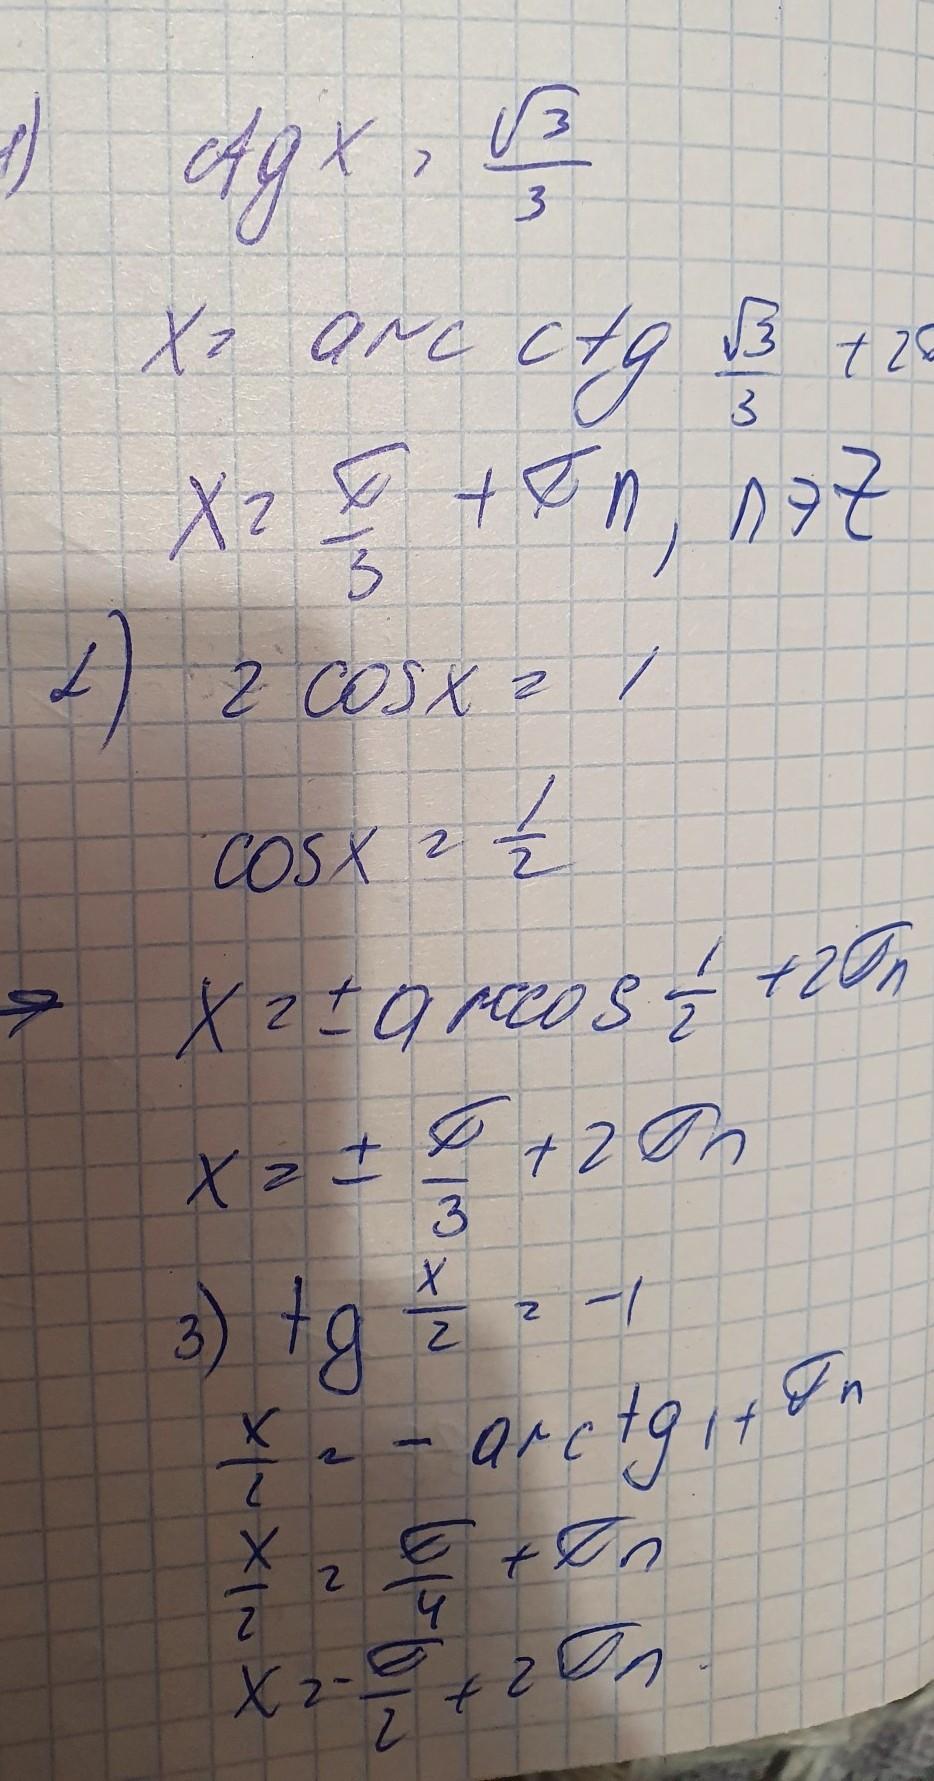 1) ctg x = √3/3
x = arc ctg √3/3 + 2
x = π/3 + πn, n∈Z
2) 2 cosx = 1
cosx = 1/2
→ x = ± arccos 1/2 + 2πn
x = ± π/3 + 2πn
3) tg x/2 = -1
x/2 = - arctg 1 + πn
x/2 = π/4 + πn
x = - π/2 + 2πn.